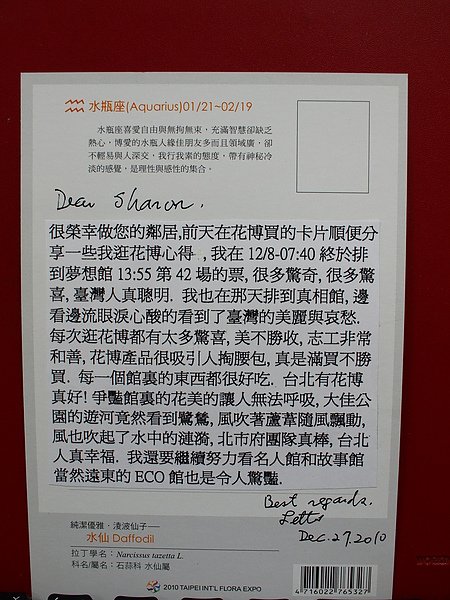 水瓶座(Aquarius)01/21~02/19
水瓶座喜愛自由與無拘無束，充滿智慧卻缺乏
熱心，博愛的水瓶人緣佳朋友多而且領域廣，卻
不輕易與人深交，我行我素的態度，帶有神秘冷
淡的感覺，是理性與感性的集合。
Dear Sharon,
很榮幸做您的鄰居,前天在花博買的卡片順便分
享一些我逛花博心得 , 我在 12/8-07:40 終於排
到夢想館 13:55 第 42 場的票, 很多驚奇, 很多驚
喜, 臺灣人真聰明. 我也在那天排到真相館, 邊
看邊流眼淚心酸的看到了臺灣的美麗與哀愁.
每次逛花博都有太多驚喜, 美不勝收, 志工非常
和善, 花博產品很吸引人掏腰包, 真是滿買不勝
買. 每一個館裏的東西都很好吃. 台北有花博
真好! 爭豔館裏的花美的讓人無法呼吸, 大佳公
園的遊河竟然看到鷺鷥, 風吹著蘆葦隨風飄動,
風也吹起了水中的漣漪, 北市府團隊真棒, 台北
人真幸福. 我還要繼續努力看名人館和故事館
當然遠東的 ECO 館也是令人驚豔.
Best regards,
Letty
Dec.27.2010
純潔優雅．淩波仙子──
水仙 Daffodil
拉丁學名：Narcissus tazetta L.
科名/屬名：石蒜科 水仙屬
2010 TAIPEI INT'L FLORA EXPO
4 716022 765327